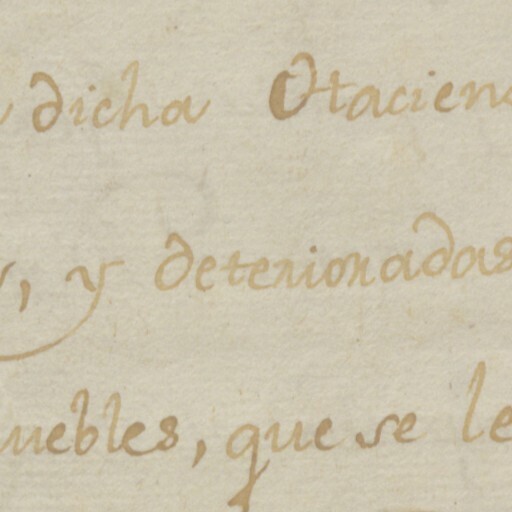 dicha Otacien
, y deterioradas
uebles, que se le